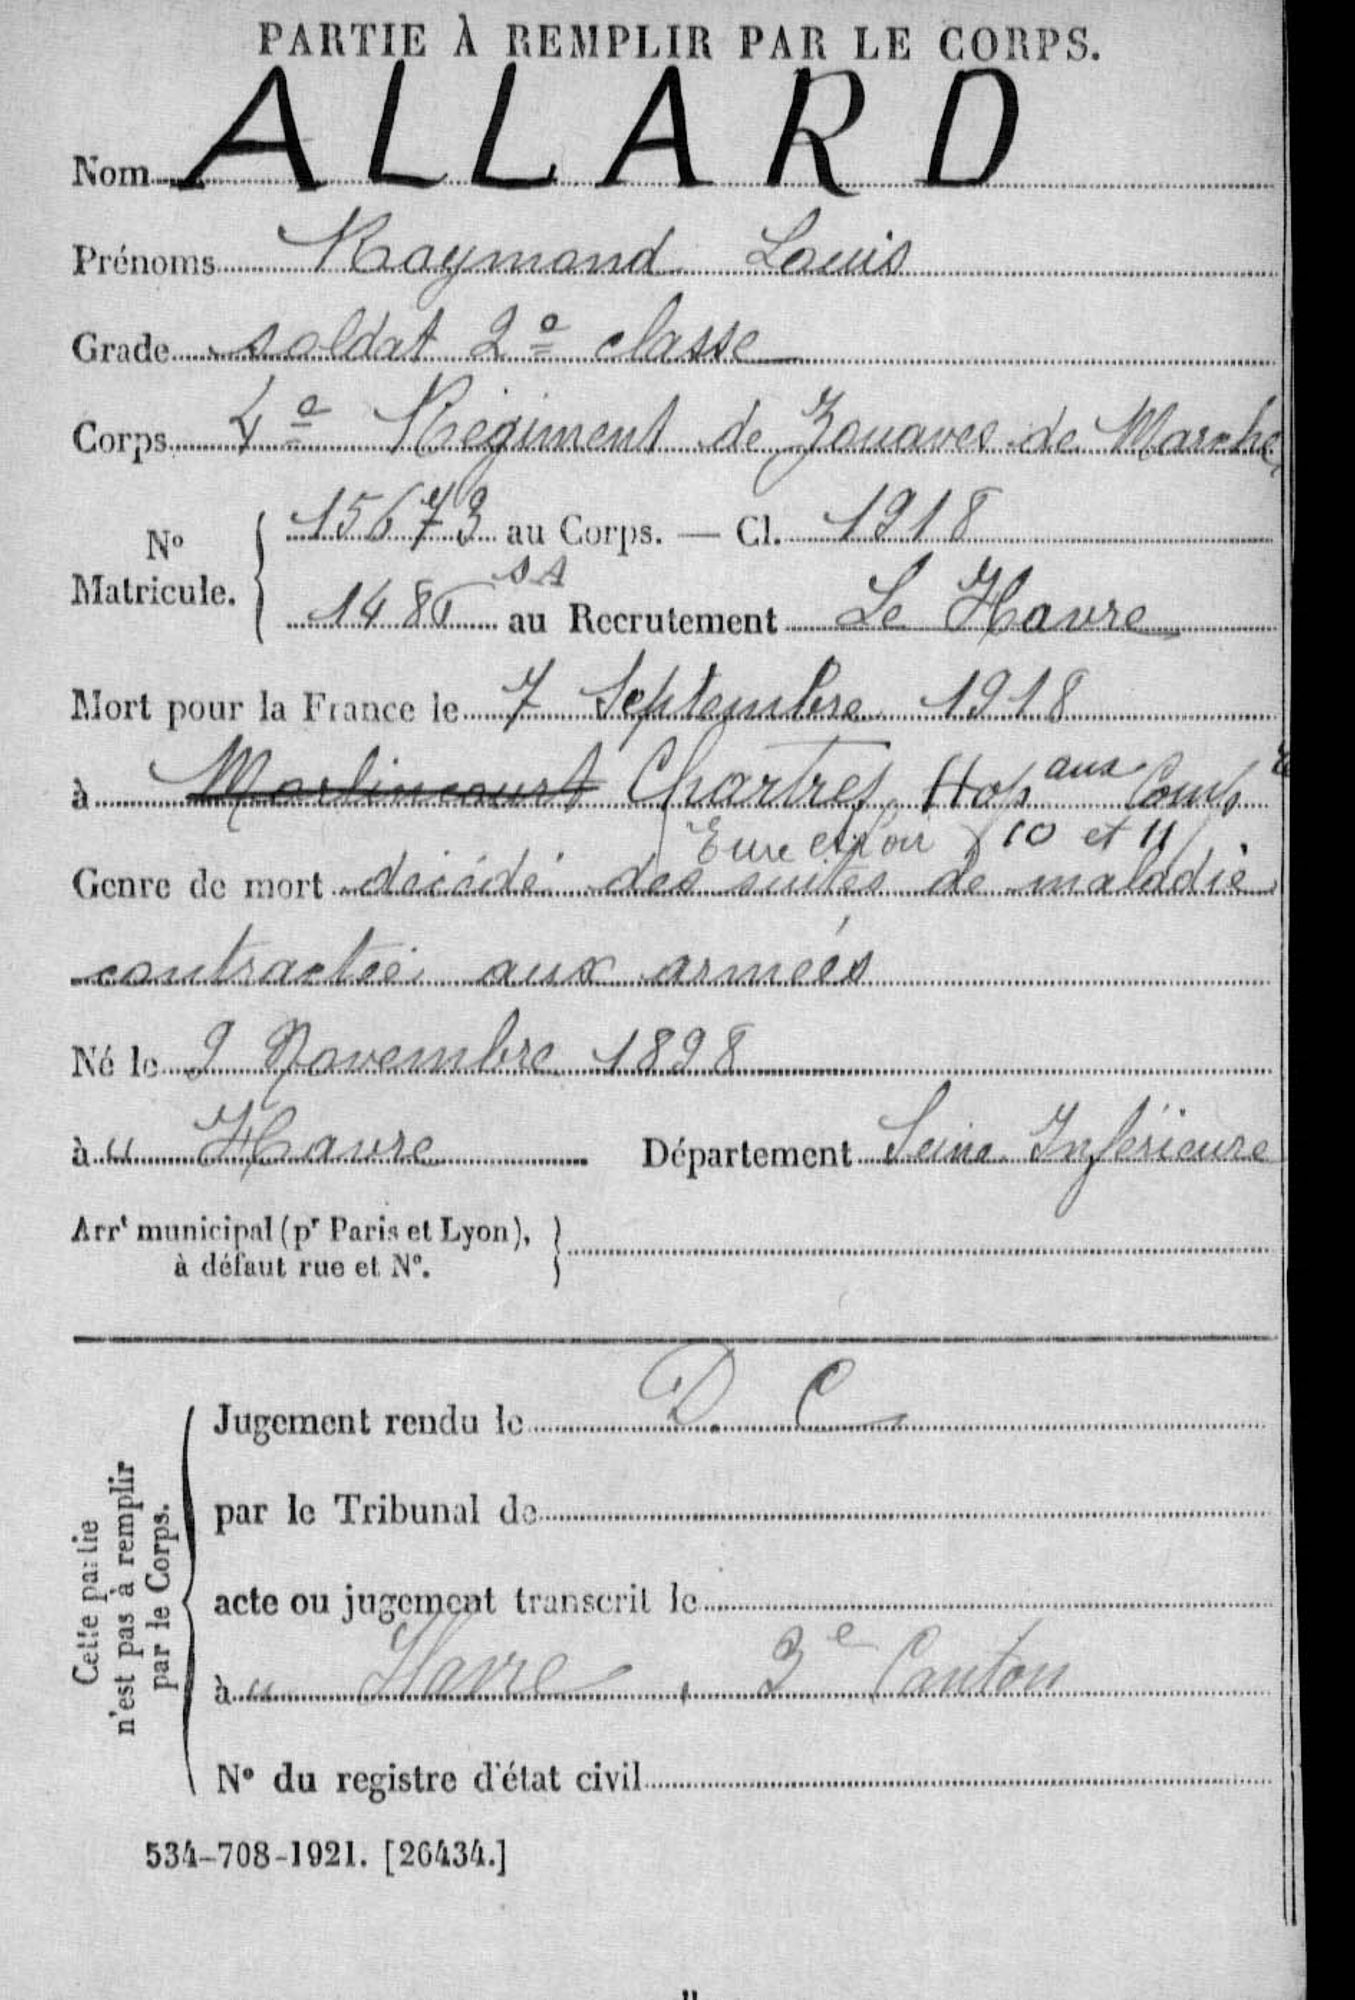 PARTIE À REMPLIR PAR LE CORPS.
Nom ALLARD
Prénoms Raymond Louis
Grade soldat 2e classe
Corps 4e Régiment de Zouaves de Marche
No Matricule. { 15673 au Corps. — Cl. 1918
SA
1485 au Recrutement Le Havre
Mort pour la France le 7 Septembre 1918
à Marlincourt Chartres Hop aux Compres
Eure et Loir 10 et 11
Genre de mort décédé des suites de maladie
contractée aux armées
Né le 9 Novembre 1898
à u Havre Département Seine Inférieure
Arrt municipal (pr Paris et Lyon),
à défaut rue et No.
Cette partie
n'est pas à remplir
par le Corps.
Jugement rendu le D. C
par le Tribunal de
acte ou jugement transcrit le
à u Havre, 3e Canton
No du registre d'état civil
534-708-1921. [26434.]